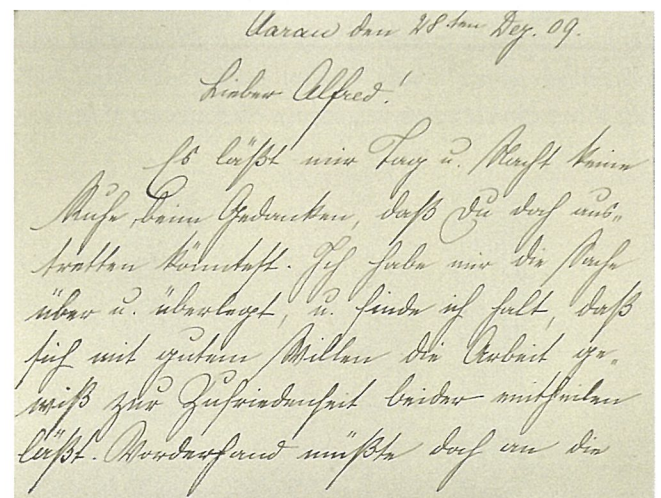 Aarau den 28ten Dez. 09.
Lieber Alfred!
Es läßt mir Tag u. Nacht keine
Ruhe, beim Gedanken, daß Du doch aus-
tretten könntest. Ich habe mir die Sache
über u. überlegt, u. finde ich halt, daß
sich mit gutem Willen die Arbeit ge-
wiß zur Zufriedenheit beider eintheilen
läßt. Vorderhand müßte doch an die